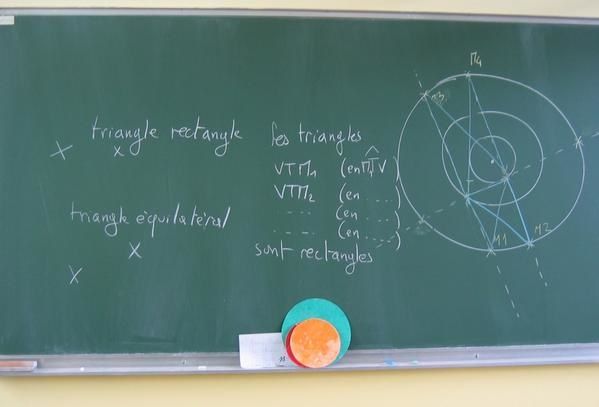 triangle rectangle
triangle équilatéral
Les triangles
VTM1 (en M1TV)
VTM2 (en .....)
..... (en .....)
..... (en .....)
sont rectangles
M4
M3
M1
M2